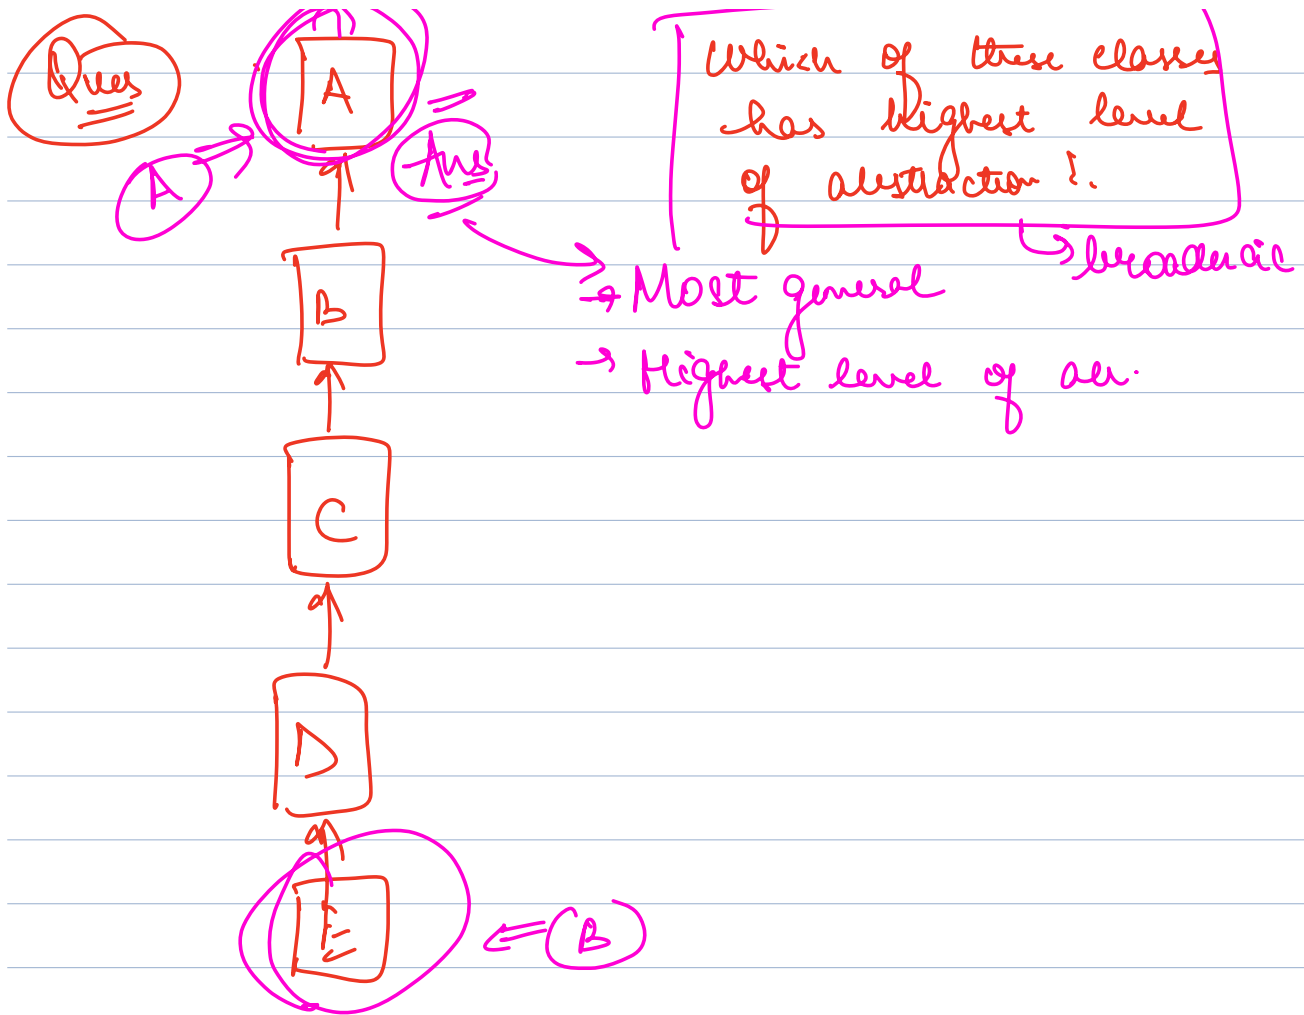 Ques
A
Which of these classes
has highest level
of abstraction?
A
Ans
→ Most general
→ Highest level of
B
C
D
E
B